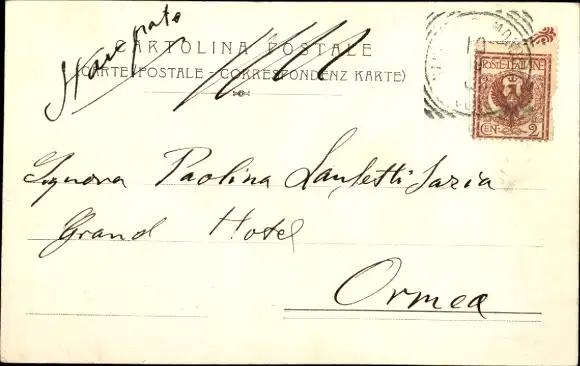 Stampato
CARTOLINA POSTALE
(CARTE POSTALE - CORRESPONDENZ KARTE)
POSTE ITALIANE
CEN. 2
Signora Paolina
Grand Hotel
Ormea